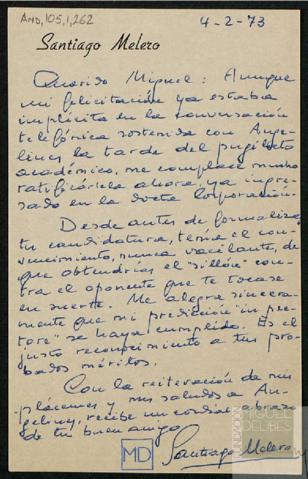 AMD, 105, 1, 262
4-2-73
Santiago Melero
Querido Miguel: Aunque
mi felicitación ya estaba
implícita en la conversación
telefónica sostenida con Ange-
lines, la tarde del pugilato
académico, me complace mucho
ratificártela ahora, ya ingre-
sado en la docta Corporación.
Desde antes de formalizar
tu candidatura, tenía el con-
vencimiento, nunca vacilante, de
que obtendrías el "sillón" con-
tra el oponente que te tocase
en suerte. Me alegra sincera-
mente que mi predicción "in pe-
tore" se haya cumplido. Es el
justo reconocimiento a tus pro-
bados méritos.
Con la reiteración de mis
plácemes y mis saludos a An-
gelines, recibe un cordial abrazo
de tu buen amigo
Santiago Melero
MD
FUNDACIÓN
MIGUEL
DELIBES